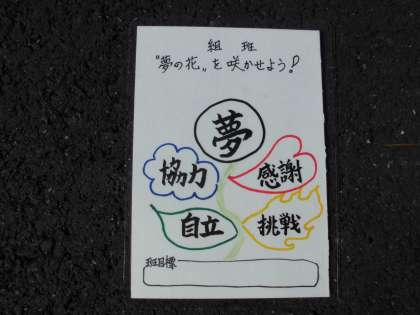 組 班
“夢の花”を咲かせよう!
夢
協力
感謝
自立
挑戦
班目標